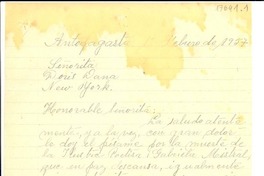 17641.1
Antofagasta, Febrero de, 1957
Señorita
Doris Dana
New York.
Honorable señorita:
La saludo atenta-
mente, y a la vez, con gran dolor
le doy el pésame por la muerte de
la Ilustre Poetisa Gabriela Mistral,
que en paz descanse, igualmente